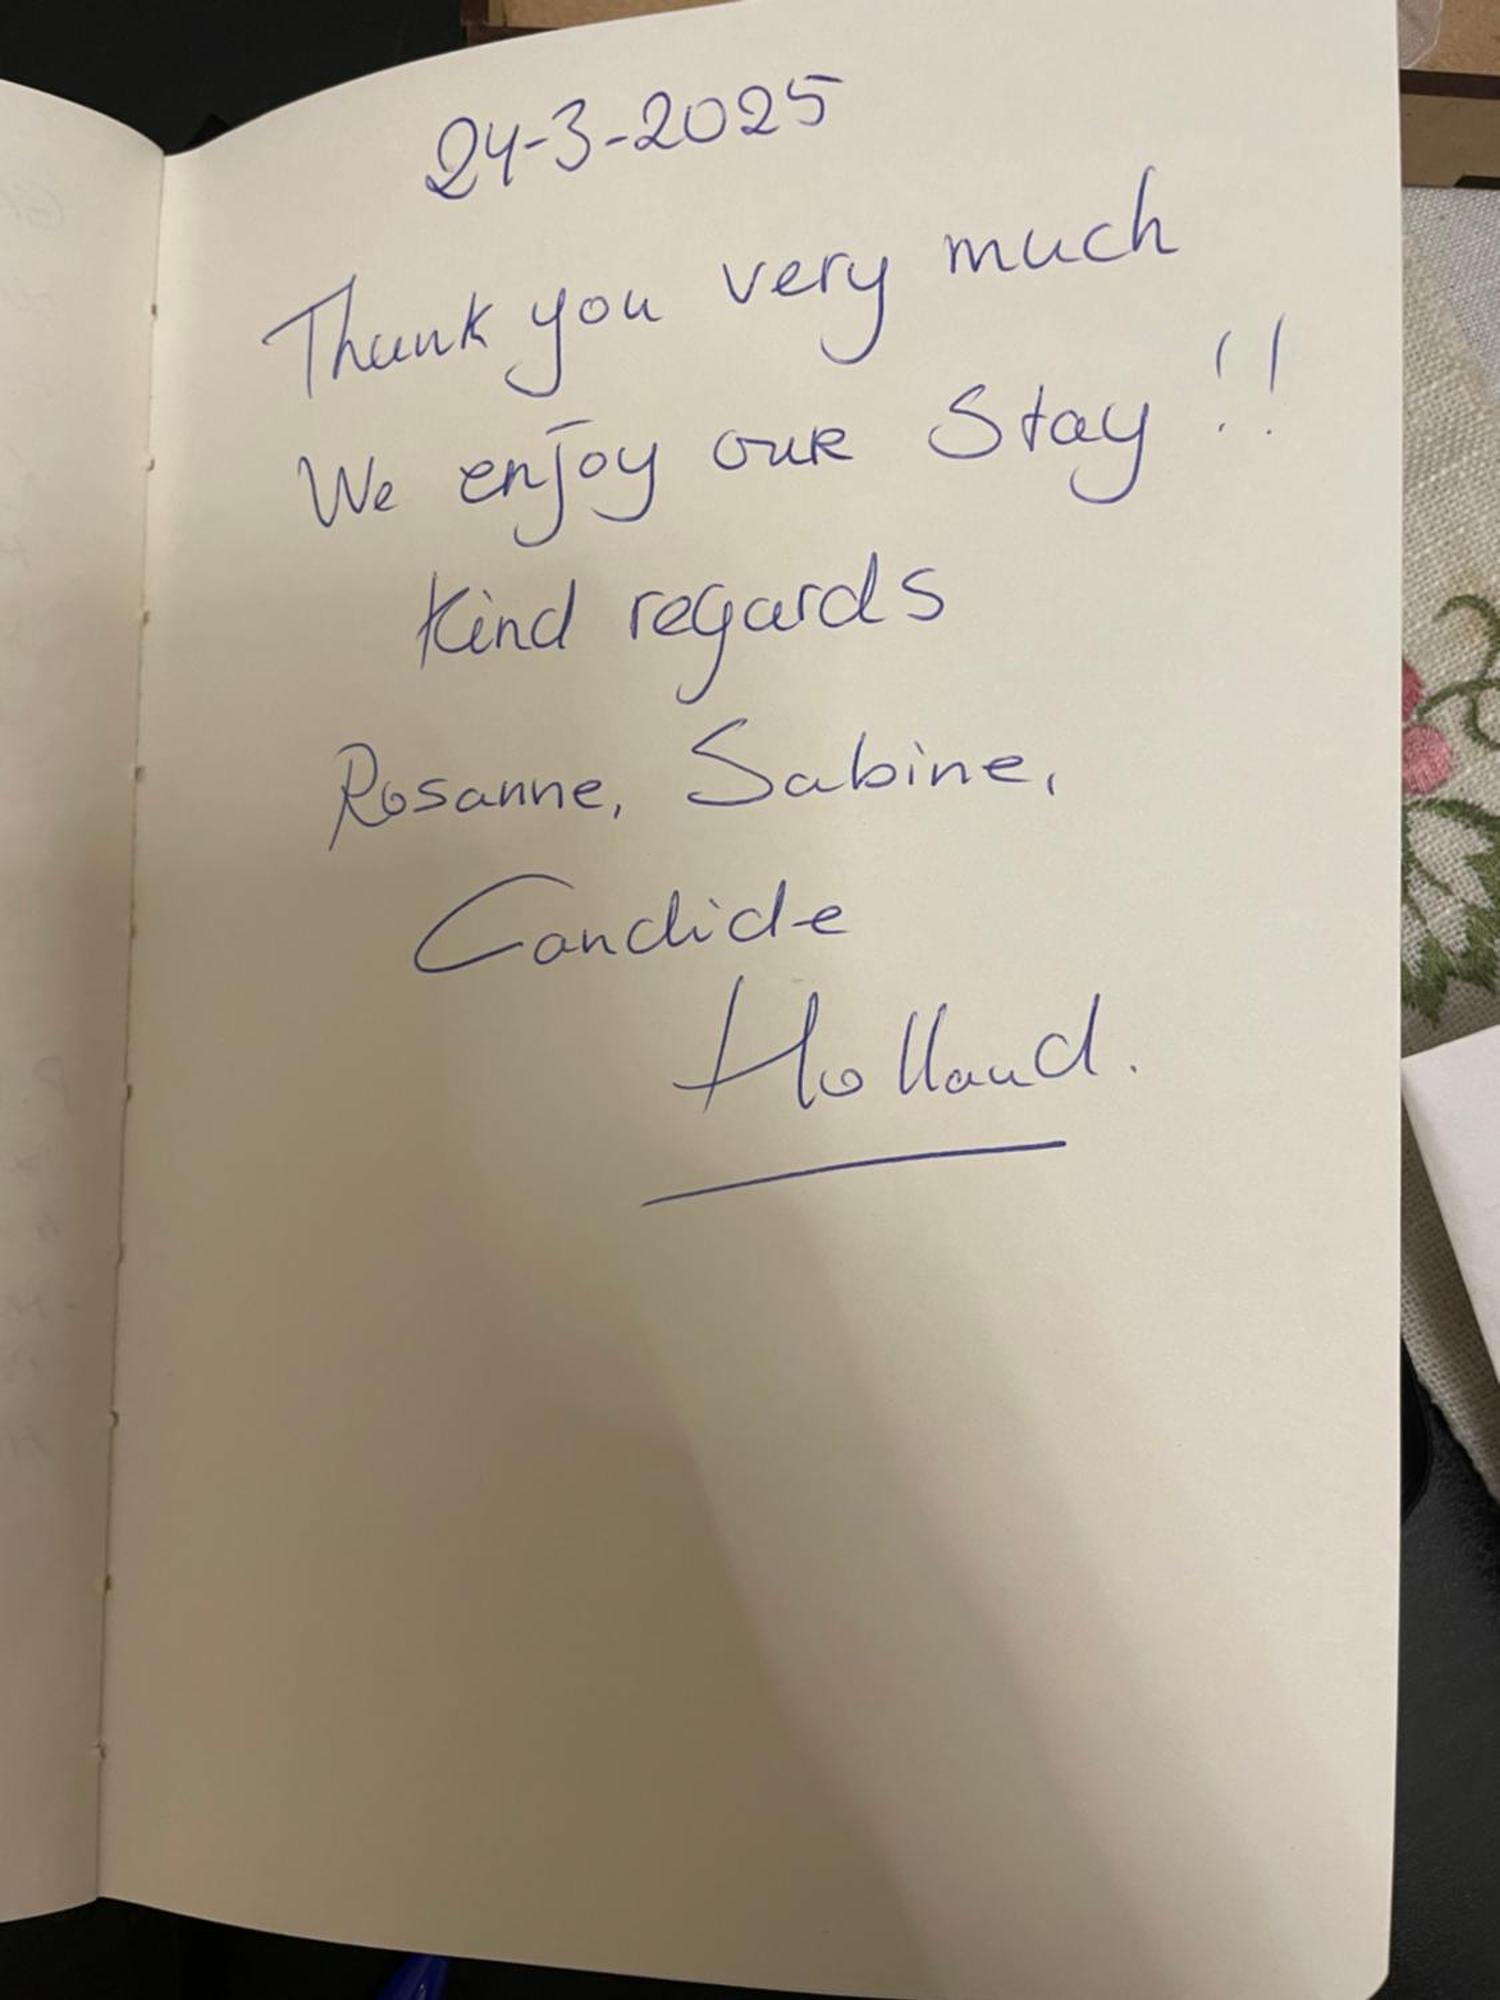 24-3-2025
Thank you very much
We enjoy our Stay !!
Kind regards
Rosanne, Sabine,
Candide
Holland.